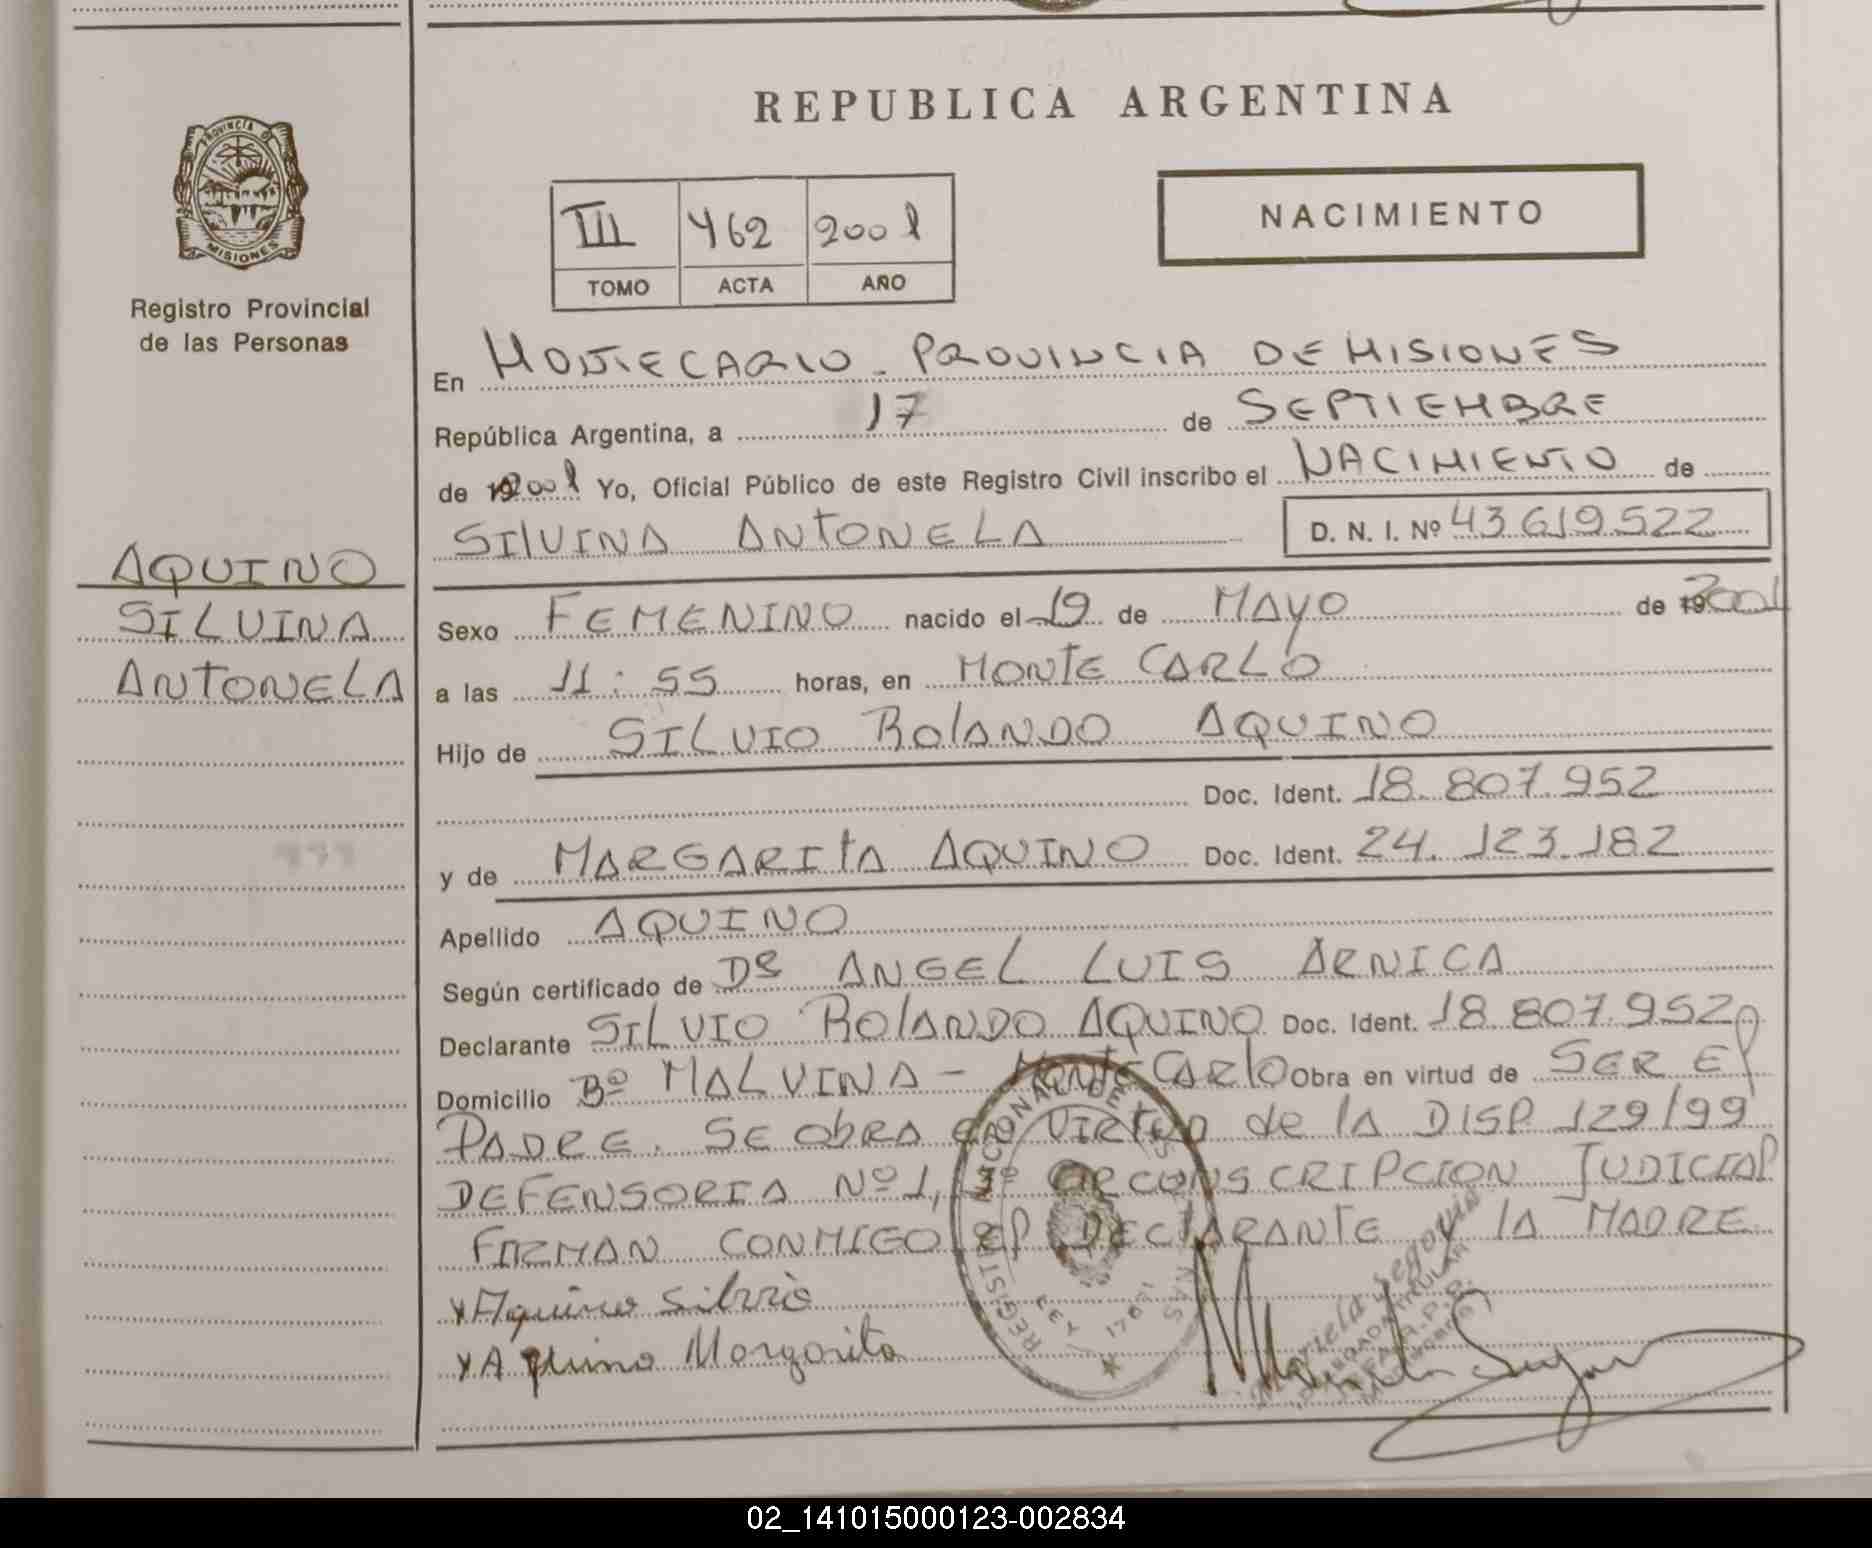 REPUBLICA ARGENTINA
PROVINCIA D
MISIONES
Registro Provincial
de las Personas
III 462 2001
TOMO ACTA AÑO
NACIMIENTO
En MONTECARLO - PROVINCIA DE MISIONES
República Argentina, a 17 de SEPTIEMBRE
de 2001 Yo, Oficial Público de este Registro Civil inscribo el NACIMIENTO de
SILVINA ANTONELA D. N. I. Nº 43.619.522
AQUINO
SILVINA
ANTONELA
Sexo FEMENINO nacido el 19 de MAYO de 2001
a las 11:55 horas, en MONTE CARLO
Hijo de SILVIO ROLANDO AQUINO
Doc. Ident. 18.807.952
y de MARGARITA AQUINO Doc. Ident. 24.123.182
Apellido AQUINO
Según certificado de Dr ANGEL LUIS ARNICA
Declarante SILVIO ROLANDO AQUINO Doc. Ident. 18.807.952
Domicilio Bº MALVINA - MONTE CARLO Obra en virtud de SER El
PADRE. SE ObRA EN VIRTUD de lA DISP. 129/99
DEFENSORIA Nº 1, CIRCONSCRIPCION JUDICIAl
FIRMAN CONMIGO El DEClARANTE y lA MADRE
x Aquino Silvio
x Aquino Margarita
REGISTRO NACIONAL DE LAS PERSONAS
LEY 17671
02_141015000123-002834